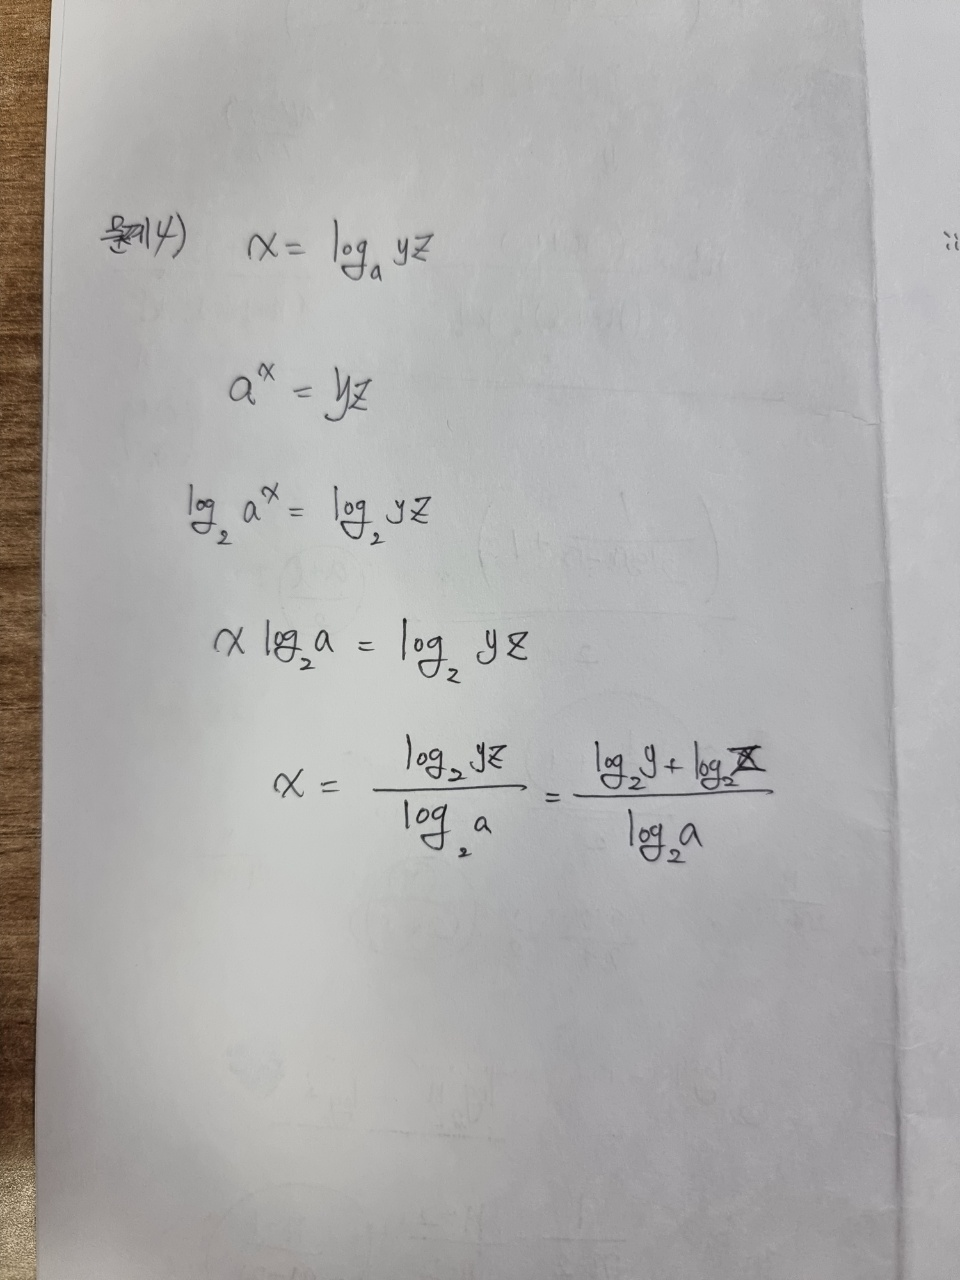 문제4) x = logₐ yz
aˣ = yz
log₂ aˣ = log₂ yz
x log₂ a = log₂ yz
x = log₂ yz / log₂ a = (log₂ y + log₂ z) / log₂ a